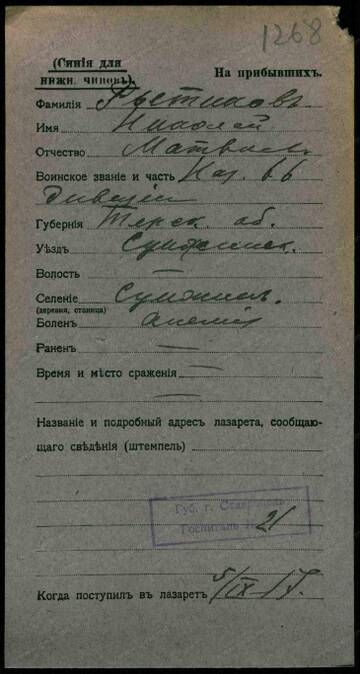 1268
(Синія для
нижн. чиновъ).
На прибывшихъ.
Фамилія
Имя Николай
Отчество Матвѣев.
Воинское званіе и часть Каз. 66
Дивизіи
Губернія Терск. об.
Уѣздъ Сунженск.
Волость —
Селеніе Сунженс.
(деревня, станица)
Боленъ Анемія
Раненъ —
Время и мѣсто сраженія —
—
Названіе и подробный адресъ лазарета, сообщаю-
щаго свѣдѣнія (штемпель)
Губ. г.
Госпиталь 21
Когда поступилъ въ лазаретъ 5/IX-17.